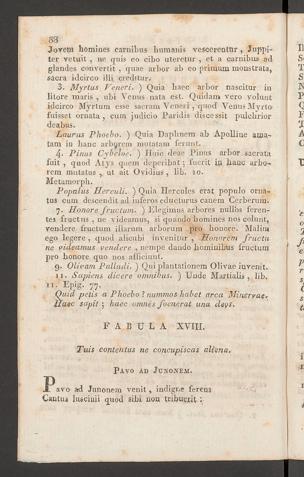 88
Jovem homines carnibus humanis vescerentur, Juppi-
ter vetuit, ne quis eo cibo uteretur, et a carnibus ad
glandes convertit, quae arbor ab eo primum monstrata,
sacra idcirco illi creditur.
3. Myrtus Veneri.) Quia haec arbor nascitur in
litore maris, ubi Venus nata est. Quidam vero volunt
idcirco Myrtum esse sacram Veneri, quod Venus Myrto
fuisset ornata, cum judicio Paridis discessit pulchrior
deabus.
Laurus Phoebo.) Quia Daphnem ab Apolline ama-
tam in hanc arborem mutatam ferunt.
4. Pinus Cybelae.) Huic deae Pinus arbor sacrata
fuit, quod Atys quem deperibat; fuerit in hanc arbo-
rem mutatus, ut ait Ovidius, lib. 10.
Metamorph.
Populus Herculi.) Quia Hercules erat populo orna-
tus cum descendit ad inferos educturus canem Cerberum.
7. Honore fructum.) Elegimus arbores nullis feren-
tes fructus, ne videamus, si quando homines nos colunt,
vendere fructum illarum arborum pro honore. Malim
ego legere, quod alicubi invenitur, Honorem fructu
ne videamus vendere, nempe dando hominibus fructum
pro honore quo nos afficiunt.
9. Olivam Palladi.) Qui plantationem Olivae invenit.
11. Sapiens dicere omnibus.) Unde Martialis, lib.
11. Epig. 77.
Quid petis a Phoebo? nummos habet arca Minervae.
Haec sapit; haec omnes foenerat una deos.
FABULA XVIII.
Tuis contentus ne concupiscas aliena.
PAVO AD JUNONEM.
Pavo ad Junonem venit, indigne ferens
Cantus luscinii quod sibi non tribuerit;